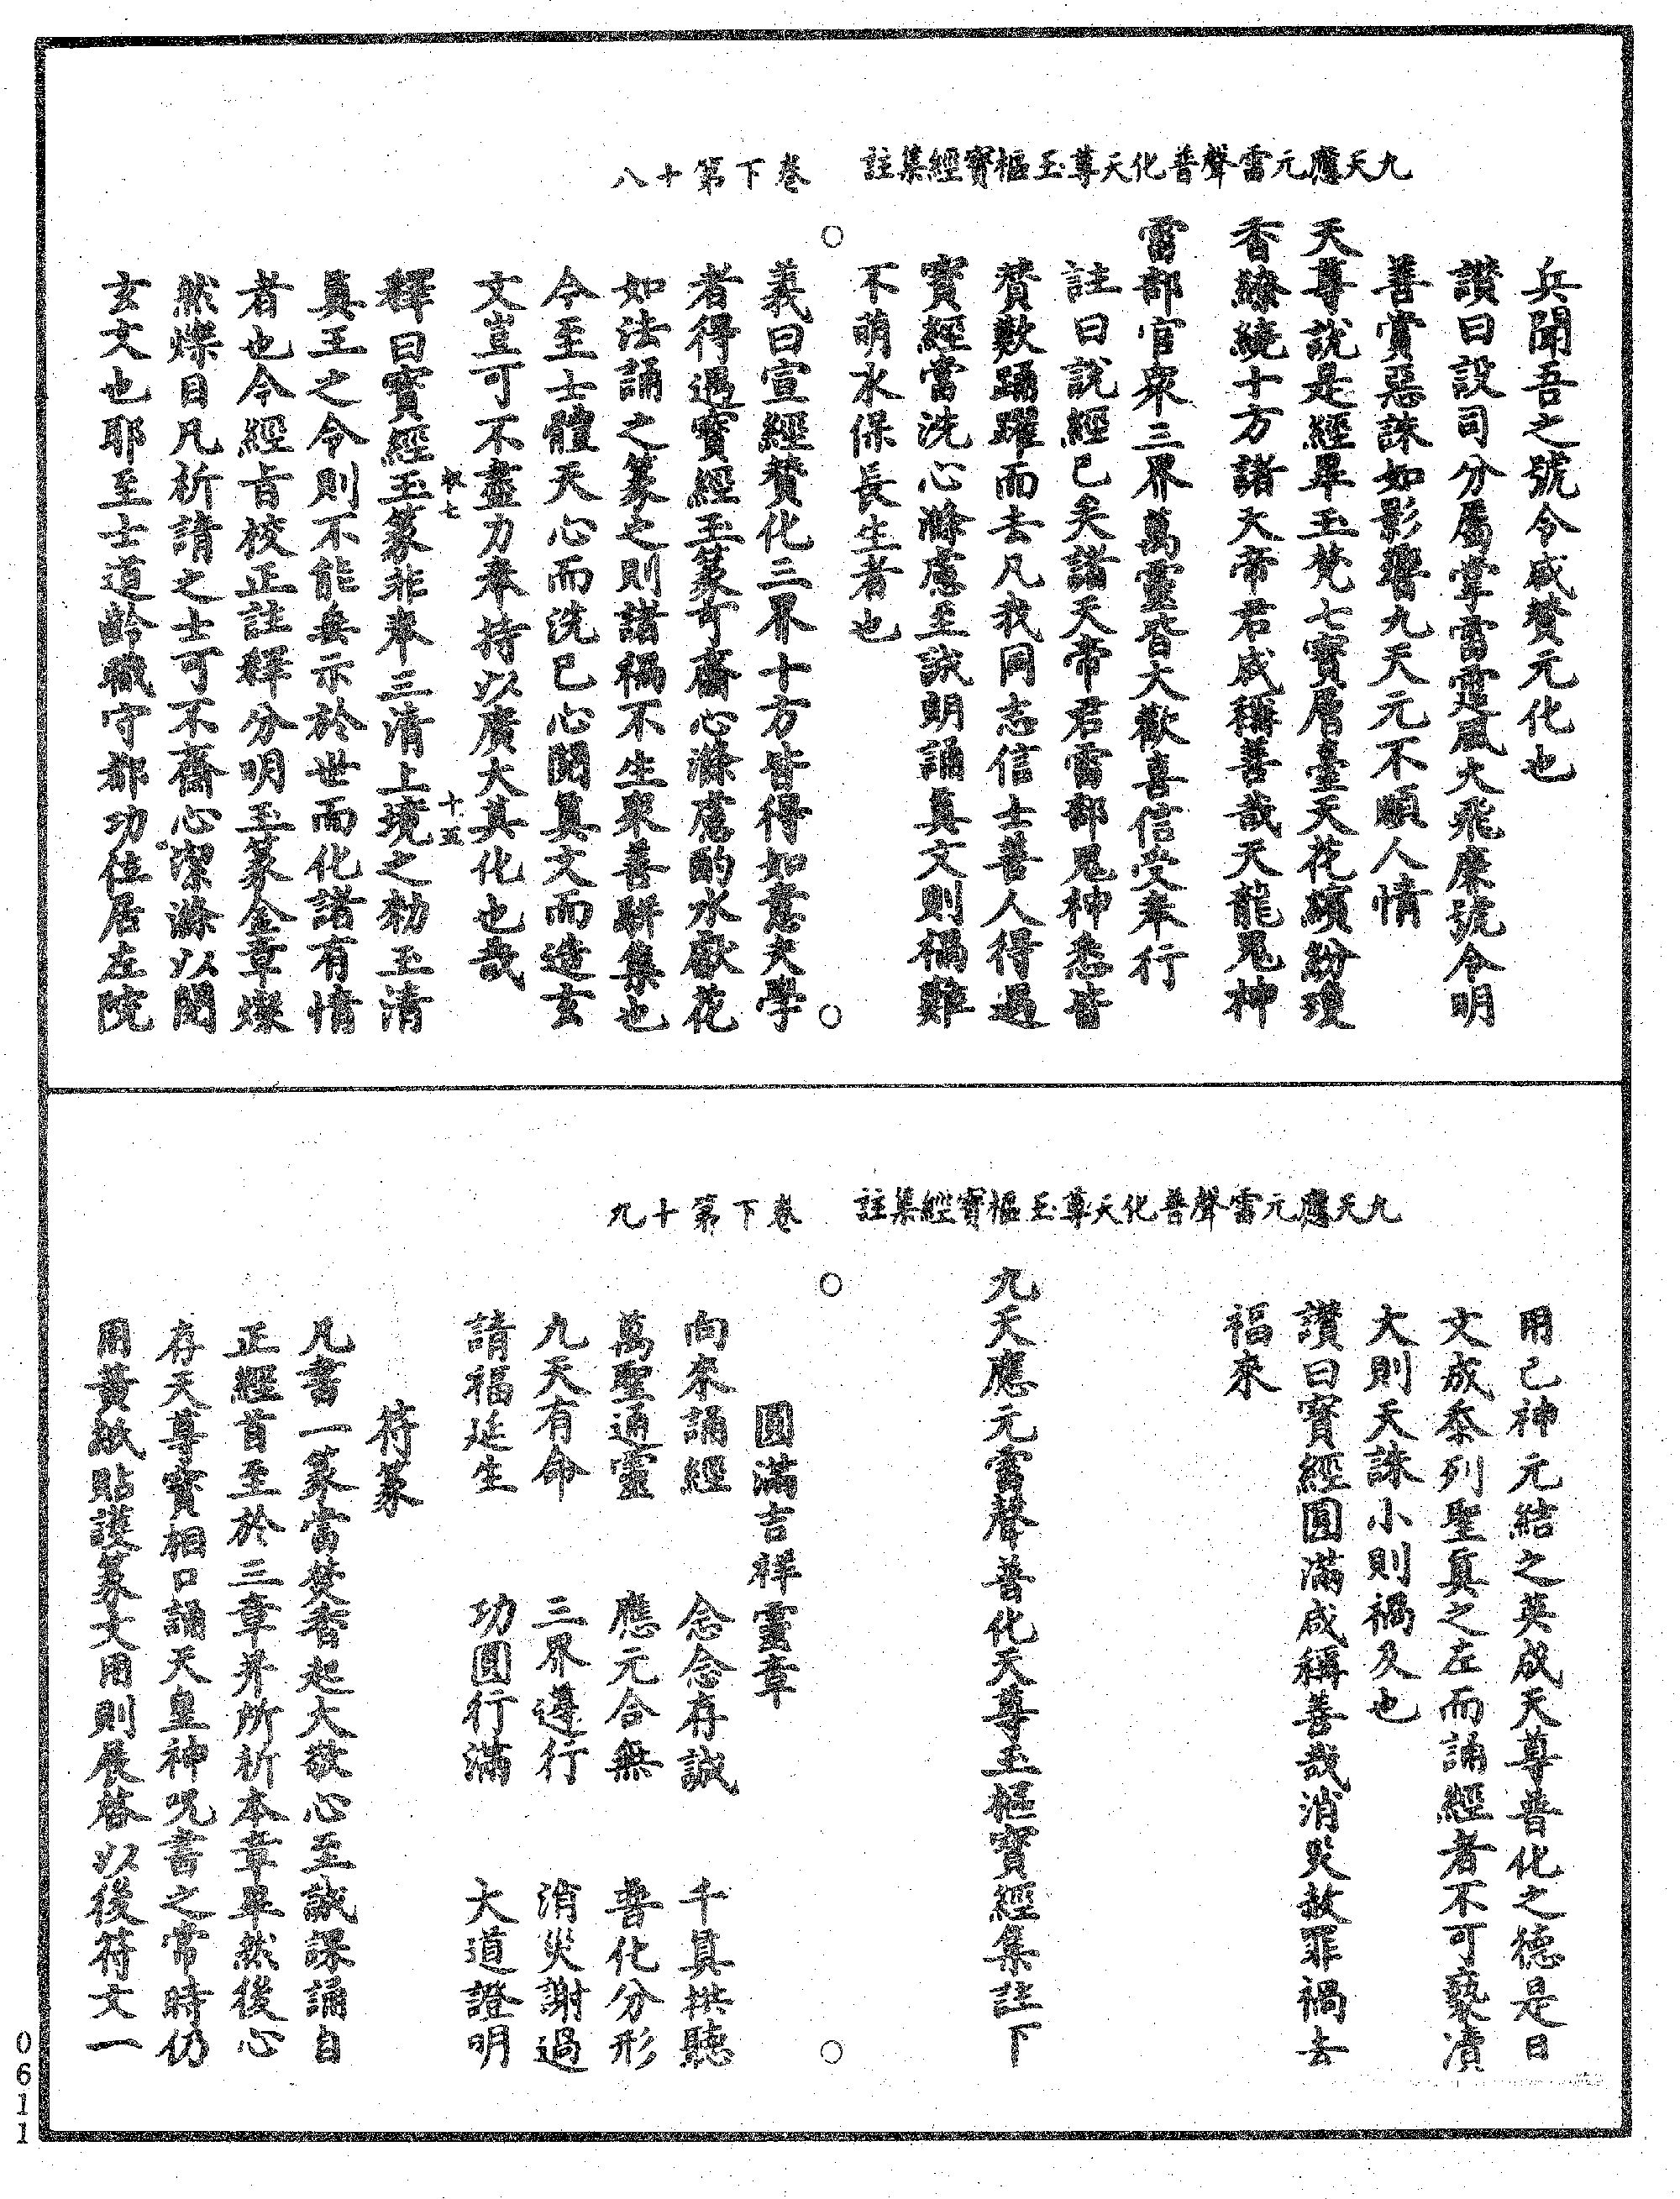 九天應元雷聲普化天尊玉樞寶經集註　卷下第十八
兵聞吾之號令咸贊元化也
讚曰設司分屬掌雷霆風火飛廉號令明
善賞惡誅如影響九天元不順人情
天尊說是經畢玉梵七寶層臺天花繽紛瓊
香繚繞十方諸天帝君咸稱善哉天龍鬼神
雷部官衆三界萬靈皆大歡喜信受奉行
註曰說經已矣諸天帝君雷部鬼神悉皆
贊歎踊躍而去凡我同志信士善人得遇
寶經當洗心滌慮至誠明誦真文則禍難
不萌永保長生者也
義曰宣經贊化三界十方皆得如意夫學
者得遇寶經玉篆可齋心滌慮酌水獻花
如法誦之篆之則諸禍不生衆善駢集也
今至士體天心而洗已心閱真文而造玄
文豈可不盡力奉持以廣大其化也哉
釋曰寶經玉篆非奉三清上境之勑玉清
真王之令則不能無示於世而化諸有情
者也今經旨校正註釋分明玉篆金章燦
然燦目凡祈請之士可不齋心潔滌以閱
玄文也耶至士道齡職守都功位居左院
九天應元雷聲普化天尊玉樞寶經集註　卷下第十九
用己神元結之英成天尊普化之德是日
文成忝列聖真之左而誦經者不可褻瀆
大則天誅小則禍及也
讚曰寶經圓滿咸稱善哉消災赦罪禍去
福來
九天應元雷聲普化天尊玉樞寶經集註下
圓滿吉祥靈章
向來誦經　念念存誠　千真拱聽
萬聖通靈　應元合無　普化分形
九天有命　三界遵行　消災謝過
請福延生　功圓行滿　大道證明
符篆
凡書一篆當焚香起大敬心至誠課誦自
正經首至於三章并所祈本章畢然後心
存天尊寶相口誦天皇神呪書之常時仍
用黃紙貼護篆文用則展啓以後符文一
0611